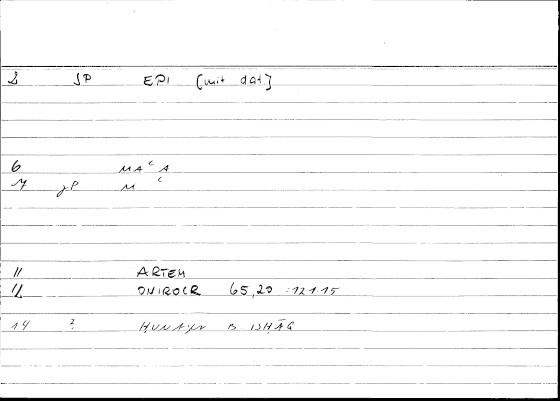 2 SP EPI [mit dat]
6 MAᶜA
7 SP Mᶜ
11 ARTEM
12 ONIROCR 65,20 : 121.15
14 ? HUNAYN B ISHĀQ